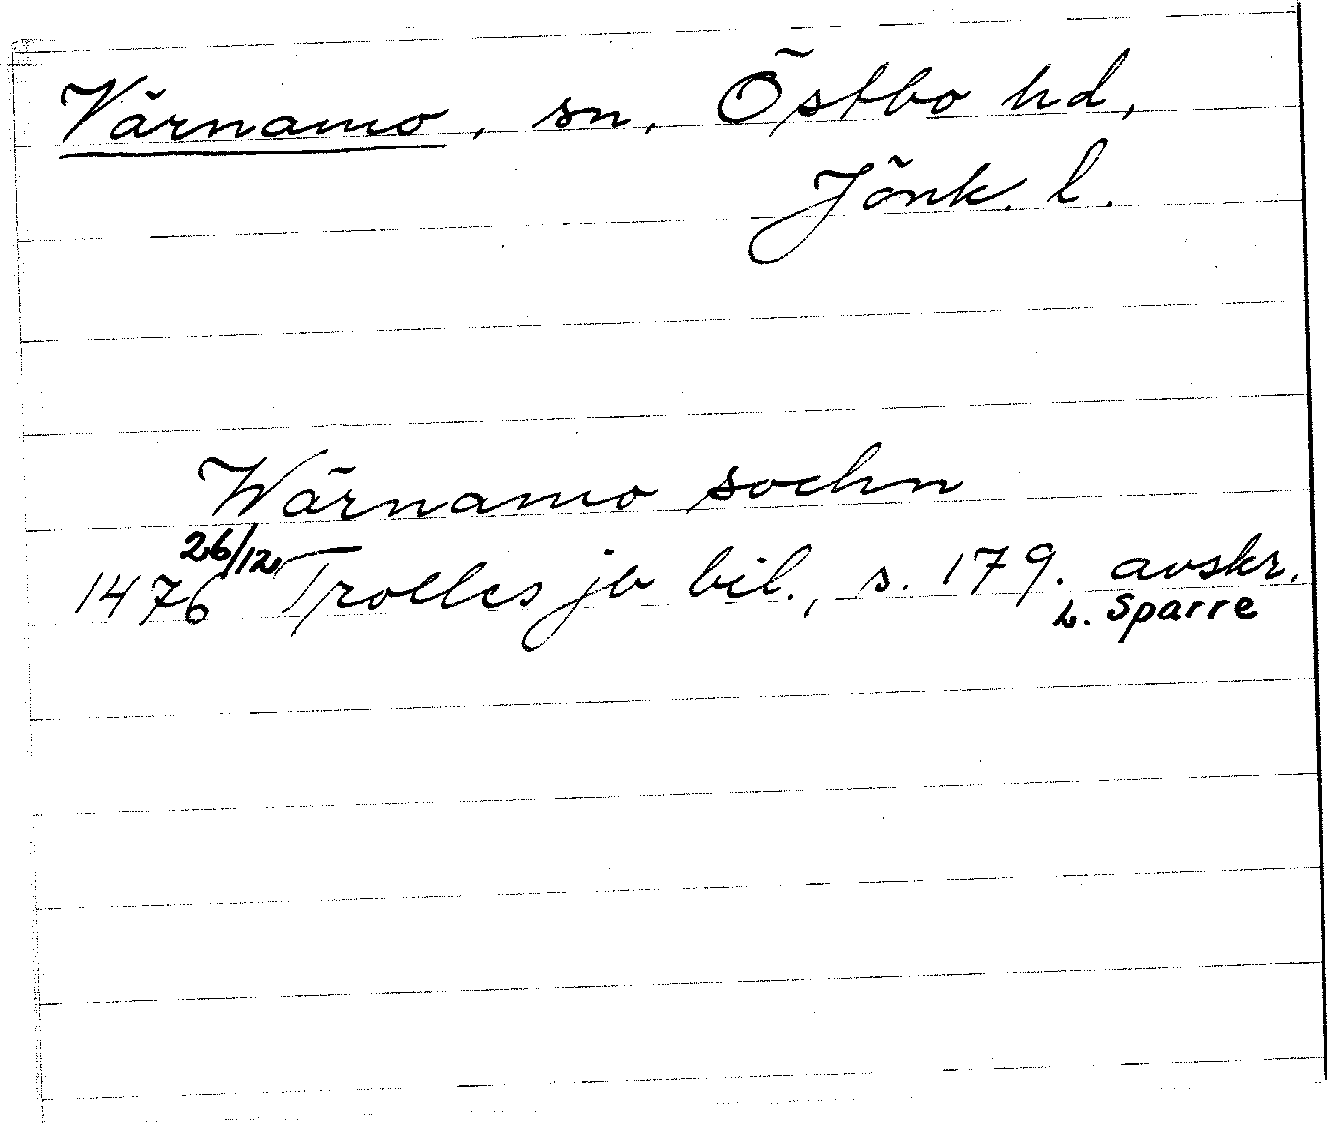 Värnamo, sn, Östbo hd,
Jönk. l.
Wärnamo sochn
1476 26/12 Trolles jb bil., s. 179. avskr.
L. Sparre